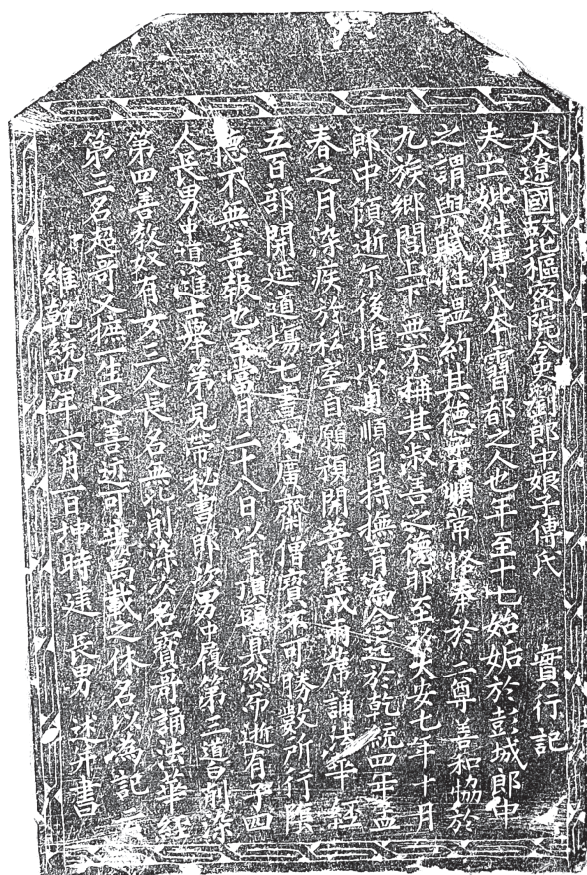 大遼國故樞密院令史劉郎中娘子傅氏　實行記
夫亡妣姓傅氏本霸郡之人也年至十七始姤於彭城郎中
之謂與賦性溫約其德常恪奉於二尊善和恊於
九族鄉閭上下無不稱其淑善之德耶至於大安七年十月
郎中傾逝尔後惟以貞順自持撫育於乾統四年孟
春之月染疾於私室自願禎開菩薩戒兩席誦法華經
五百部開延道場七晝夜廣齋僧寳不可勝數所行隂
德不無善報也至當月二十八日以手頂頭真然而逝有子四
人長男中道進士舉苐見帶秘書郎次男中履第三道白削染
第四善教奴有女三人長名無比削染次名寳哥誦法華經
第三名超哥又撫一生之善迹可垂萬載之休名以為記云
維乾統四年六月一日坤時建　長男　述并書